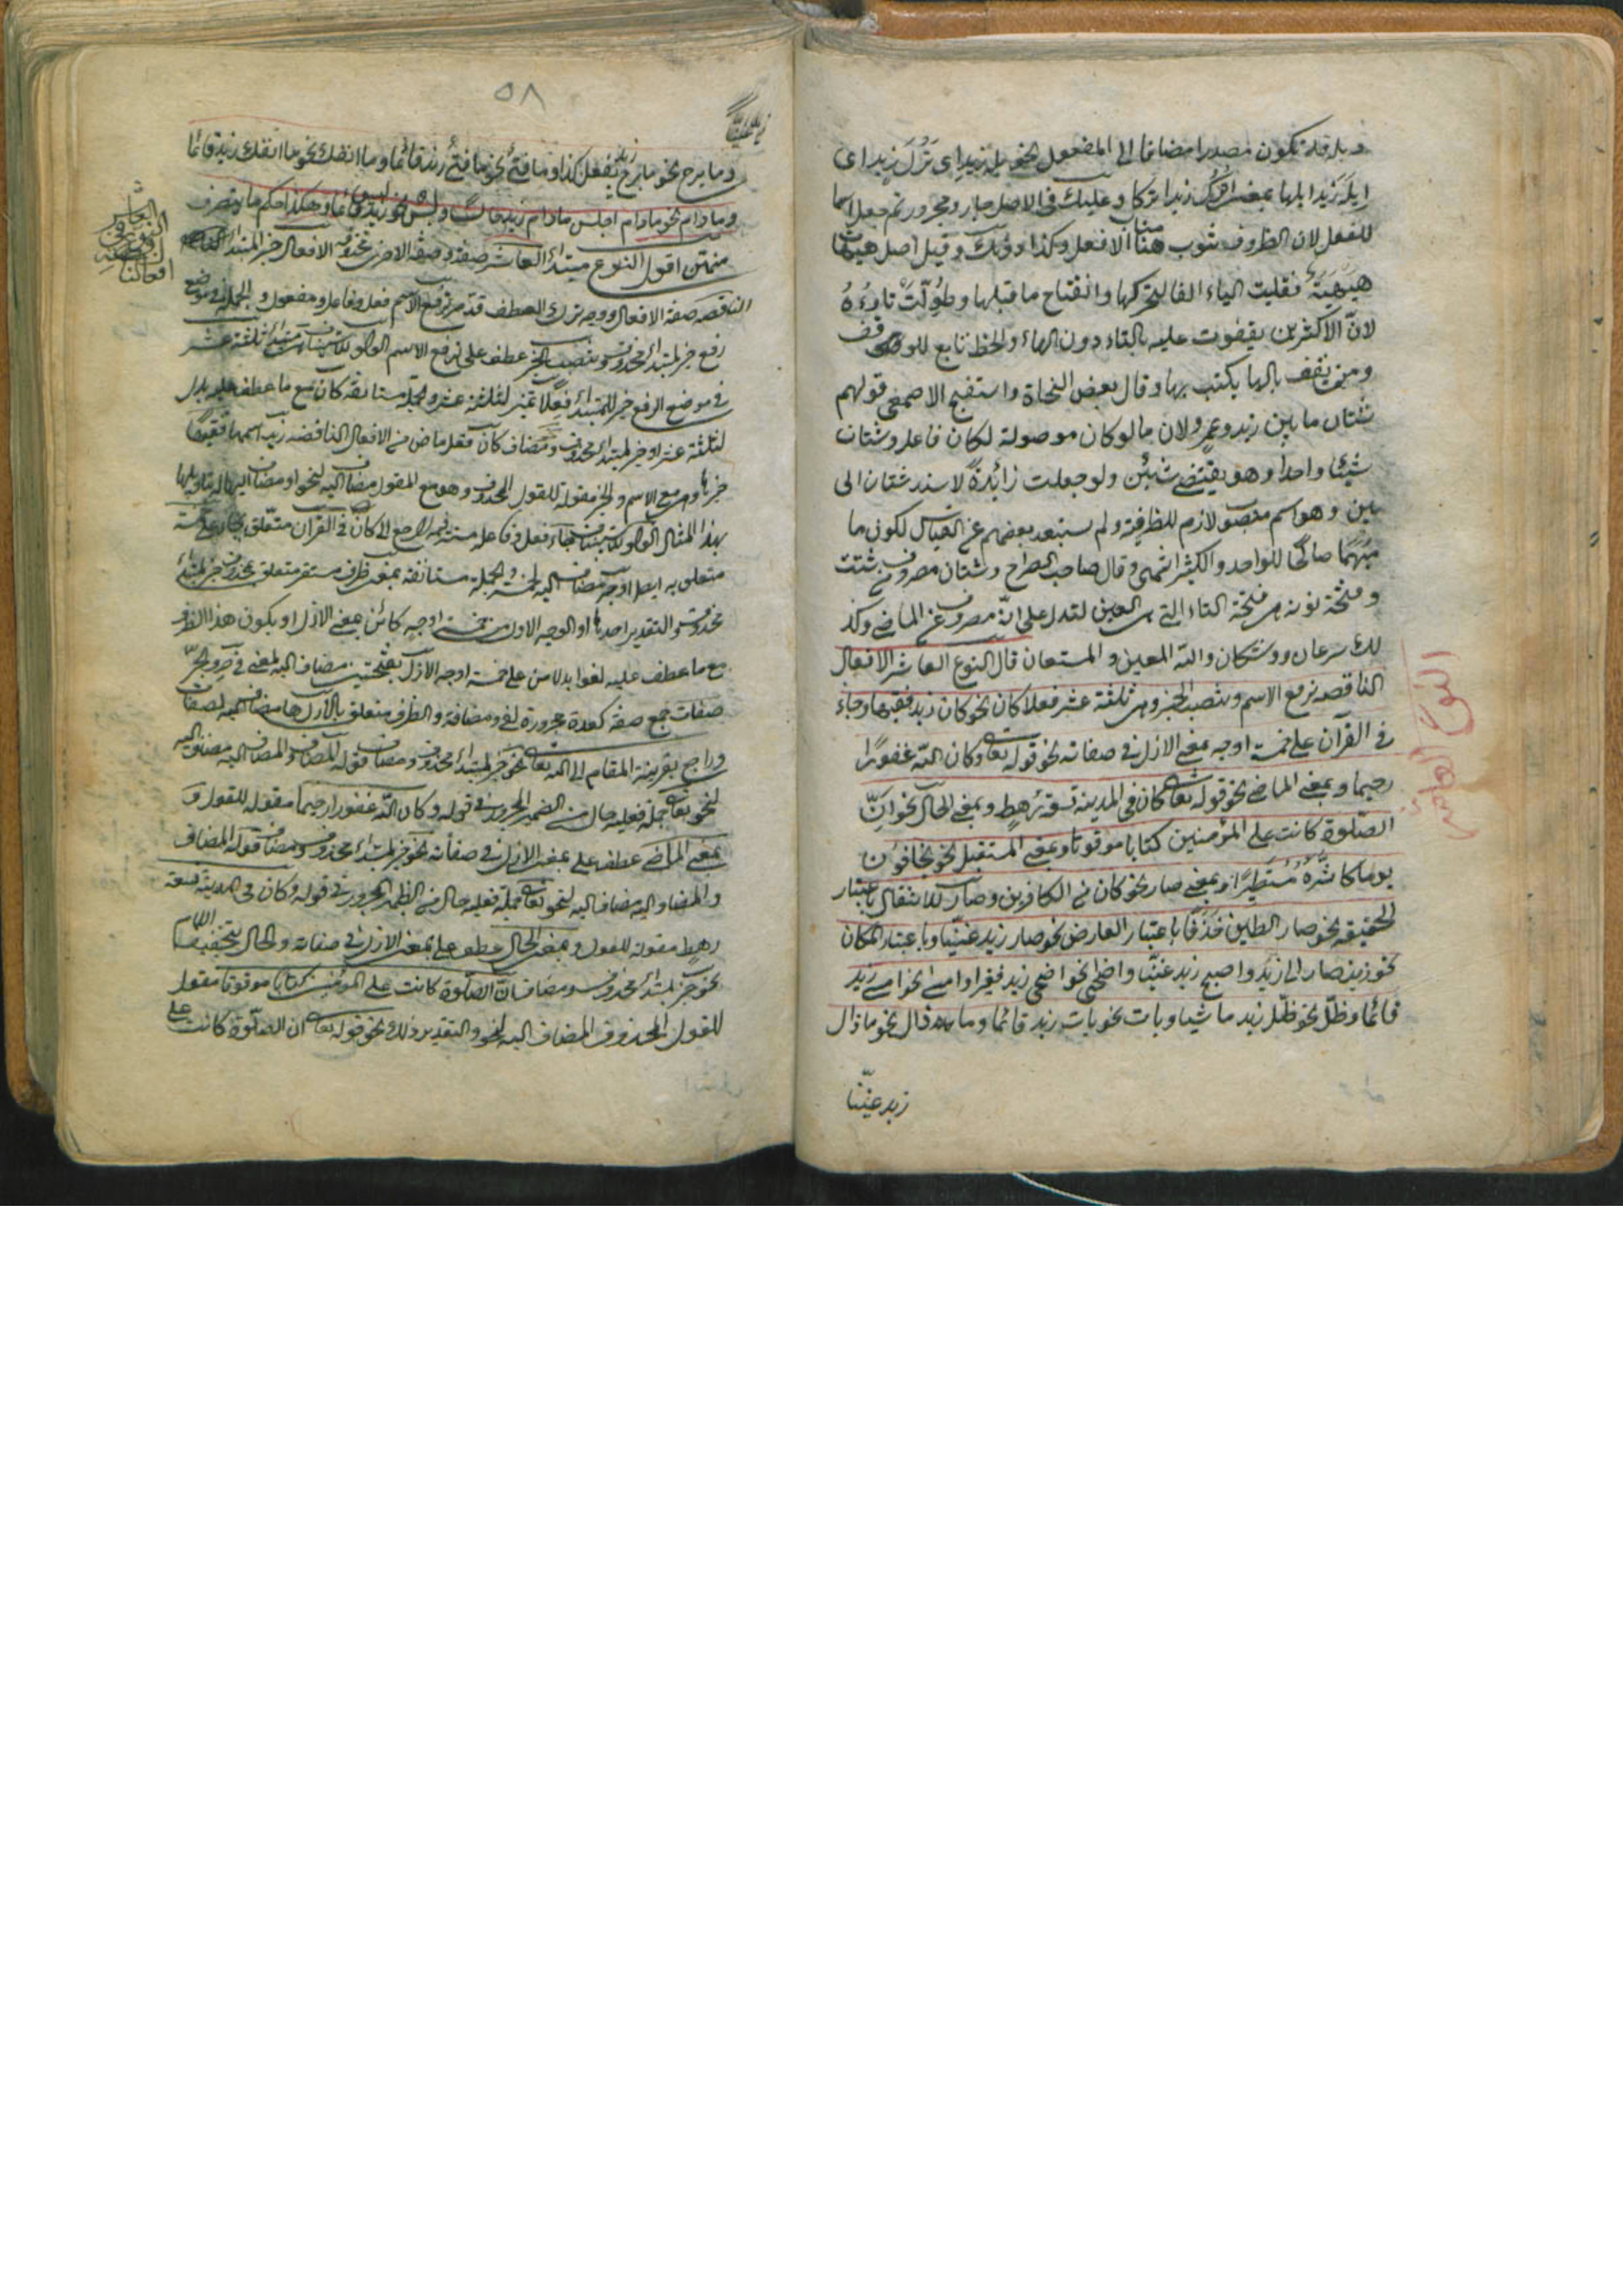 وبله قد تكون مصدرا مضافا الى المفعول نحو بله زيد اى ترك زيد اى
زيدا بمعنى اترك زيدا وعليك فى الاصل جار ومجرور ثم جعل اسما
للفعل لان الظروف تنوب الافعل وكذا دونك وقيل اصل هيهات
هيهية فقلبت الياء الفا لتحركها وانفتاح ما قبلها وطولت تاؤه
لان الاكثرين يقفون عليه بالتاء دون الهاء والخط تابع للوقف
ومن يقف بالها يكتب بها وقال بعض النحاة واستقبح الاصمعى قولهم
شتان ما بين زيد وعمرو لان ما لو كان موصولة لكان فاعل شتان
شيئا واحدا وهو يقتضى شيئين ولو جعلت زائدة لاسند شتان الى
بين وهو اسم منصوب لازم للظرفية ولم يستبعد بعضهم عن القياس لكون ما
مبهما صالحا للواحد والكثير انتهى وقال صاحب الصراح وشتان مصروف شتت
وفتحة نونه هى فتحة التاء التى هى العين لتدل على انه مصروف عن الماضى وكذ
لك سرعان ووشكان والله المعين والمستعان قال النوع العاشر الافعال
الناقصه ترفع الاسم وتنصب الخبر وهى ثلثة عشر فعلا كان نحو كان زيد فقيها وجاء
فى القرآن على خمسة اوجه بمعنى الازل فى صفاته نحو قوله تعالى وكان الله غفورا
رحيما وبمعنى الماضى نحو قوله تعالى كان فى المدينة تسعة رهط وبمعنى الحال نحو ان
الصلوة كانت على المؤمنين كتابا موقوتا وبمعنى المستقبل نحو يخافون
يوما كان شره مستطيرا وبمعنى صار نحو كان من الكافرين وصار للانتقال باعتبار
الحقيقه نحو صار الطين خذفا باعتبار العارض نحو صار زيد غنيا وباعتبار المكان
نحو زيد صار الى زيد واصبح زيد غنيا واضحى نحو اضحى زيد فقيرا وامسى نحو امسى زيد
قائما وظل نحو ظل زيد ماشيا وبات نحو بات زيد قائما وما زال نحو ما زال
زيد غنيا
النوع العاشر
٥٨
زيد غنيا
وما برح نحو ما برح زيد يفعل كذا وما فتئ نحو ما فتئ زيد قائما وما انفك نحو ما انفك زيد قائما
وما دام نحو ما دام اجلس ما دام زيد جالسا وليس نحو ليس زيد قائما وهكذا حكم ما يتصرف
منهن اقول النوع مبتدأ العاشر صفته وصفة الاخرى محذوف الافعال خبر المبتدأ
الناقصه صفة الافعال ووجه ترك العطف قد مر ترفع الاسم فعل وفاعل ومفعول والجملة فى موضع
رفع خبر لمبتدأ محذوف وتنصب الخبر عطف على ترفع الاسم الواو للاستيناف هى مبتدأ ثلثة عشر
فى موضع الرفع خبر للمبتدأ فعلا تمييز لثلثة عشر والجملة مستانفة كان مع ما عطف عليه بدل
لثلثة عشر او خبر لمبتدأ المحذوف ومضاف كان فعل ماض من الافعال الناقصه زيد اسمها فقيها
خبرها وهى مع الاسم والخبر مقولة للقول المحذوف وهو مع المقول مضاف اليه لنحو او مضاف اليها له بتاويلها
بهذا المثال الواو للاستيناف جاء فعل وفاعله مستتر فيه راجع الى كان فى القرآن متعلق بجاء على خمسة
متعلق به ايضا اوجه مضاف اليه لخمسة والجملة مستانفة بمعنى ظرف مستقر متعلق بمحذوف خبر لمبتدأ
محذوف والتقدير احدها او الوجه الاول من خمسة اوجه كائن بمعنى الازل او يكون هذا الظرف
مع ما عطف عليه لغوا بدلا من على خمسة اوجه الازل بفتحتين مضاف اليه لمعنى فى حرف جر
صفات جمع صفة كعدة مجرورة لفى ومضافة والظرف متعلق بالازل ها مضاف اليه لصفات
وراجع بقرينة المقام الى الله تعالى نحو خبر لمبتدأ محذوف ومضاف قوله للمضاف والمضاف اليه مضاف اليه
لنحو تعالى جملة فعلية حال من الضمير المجرور فى قوله وكان الله غفورا رحيما مقوله للقول و
بمعنى الماضى عطف على بمعنى الازل فى صفاته نحو خبر لمبتدأ محذوف ومضاف قوله المضاف
والمضاف اليه مضاف اليه لنحو تعالى جملة فعلية حال من الضمير المجرور فى قوله وكان فى المدينة تسعة
رهط مقوله للقول وبمعنى الحال عطف على بمعنى الازل فى صفاته والحال بتخفيف اللام
نحو خبر لمبتدأ محذوف ومضاف ان الصلوة كانت على المؤمنين كتابا موقوتا مقول
للقول المحذوف المضاف اليه لنحو والتقدير وذلك نحو قوله تعالى ان الصلوة كانت على